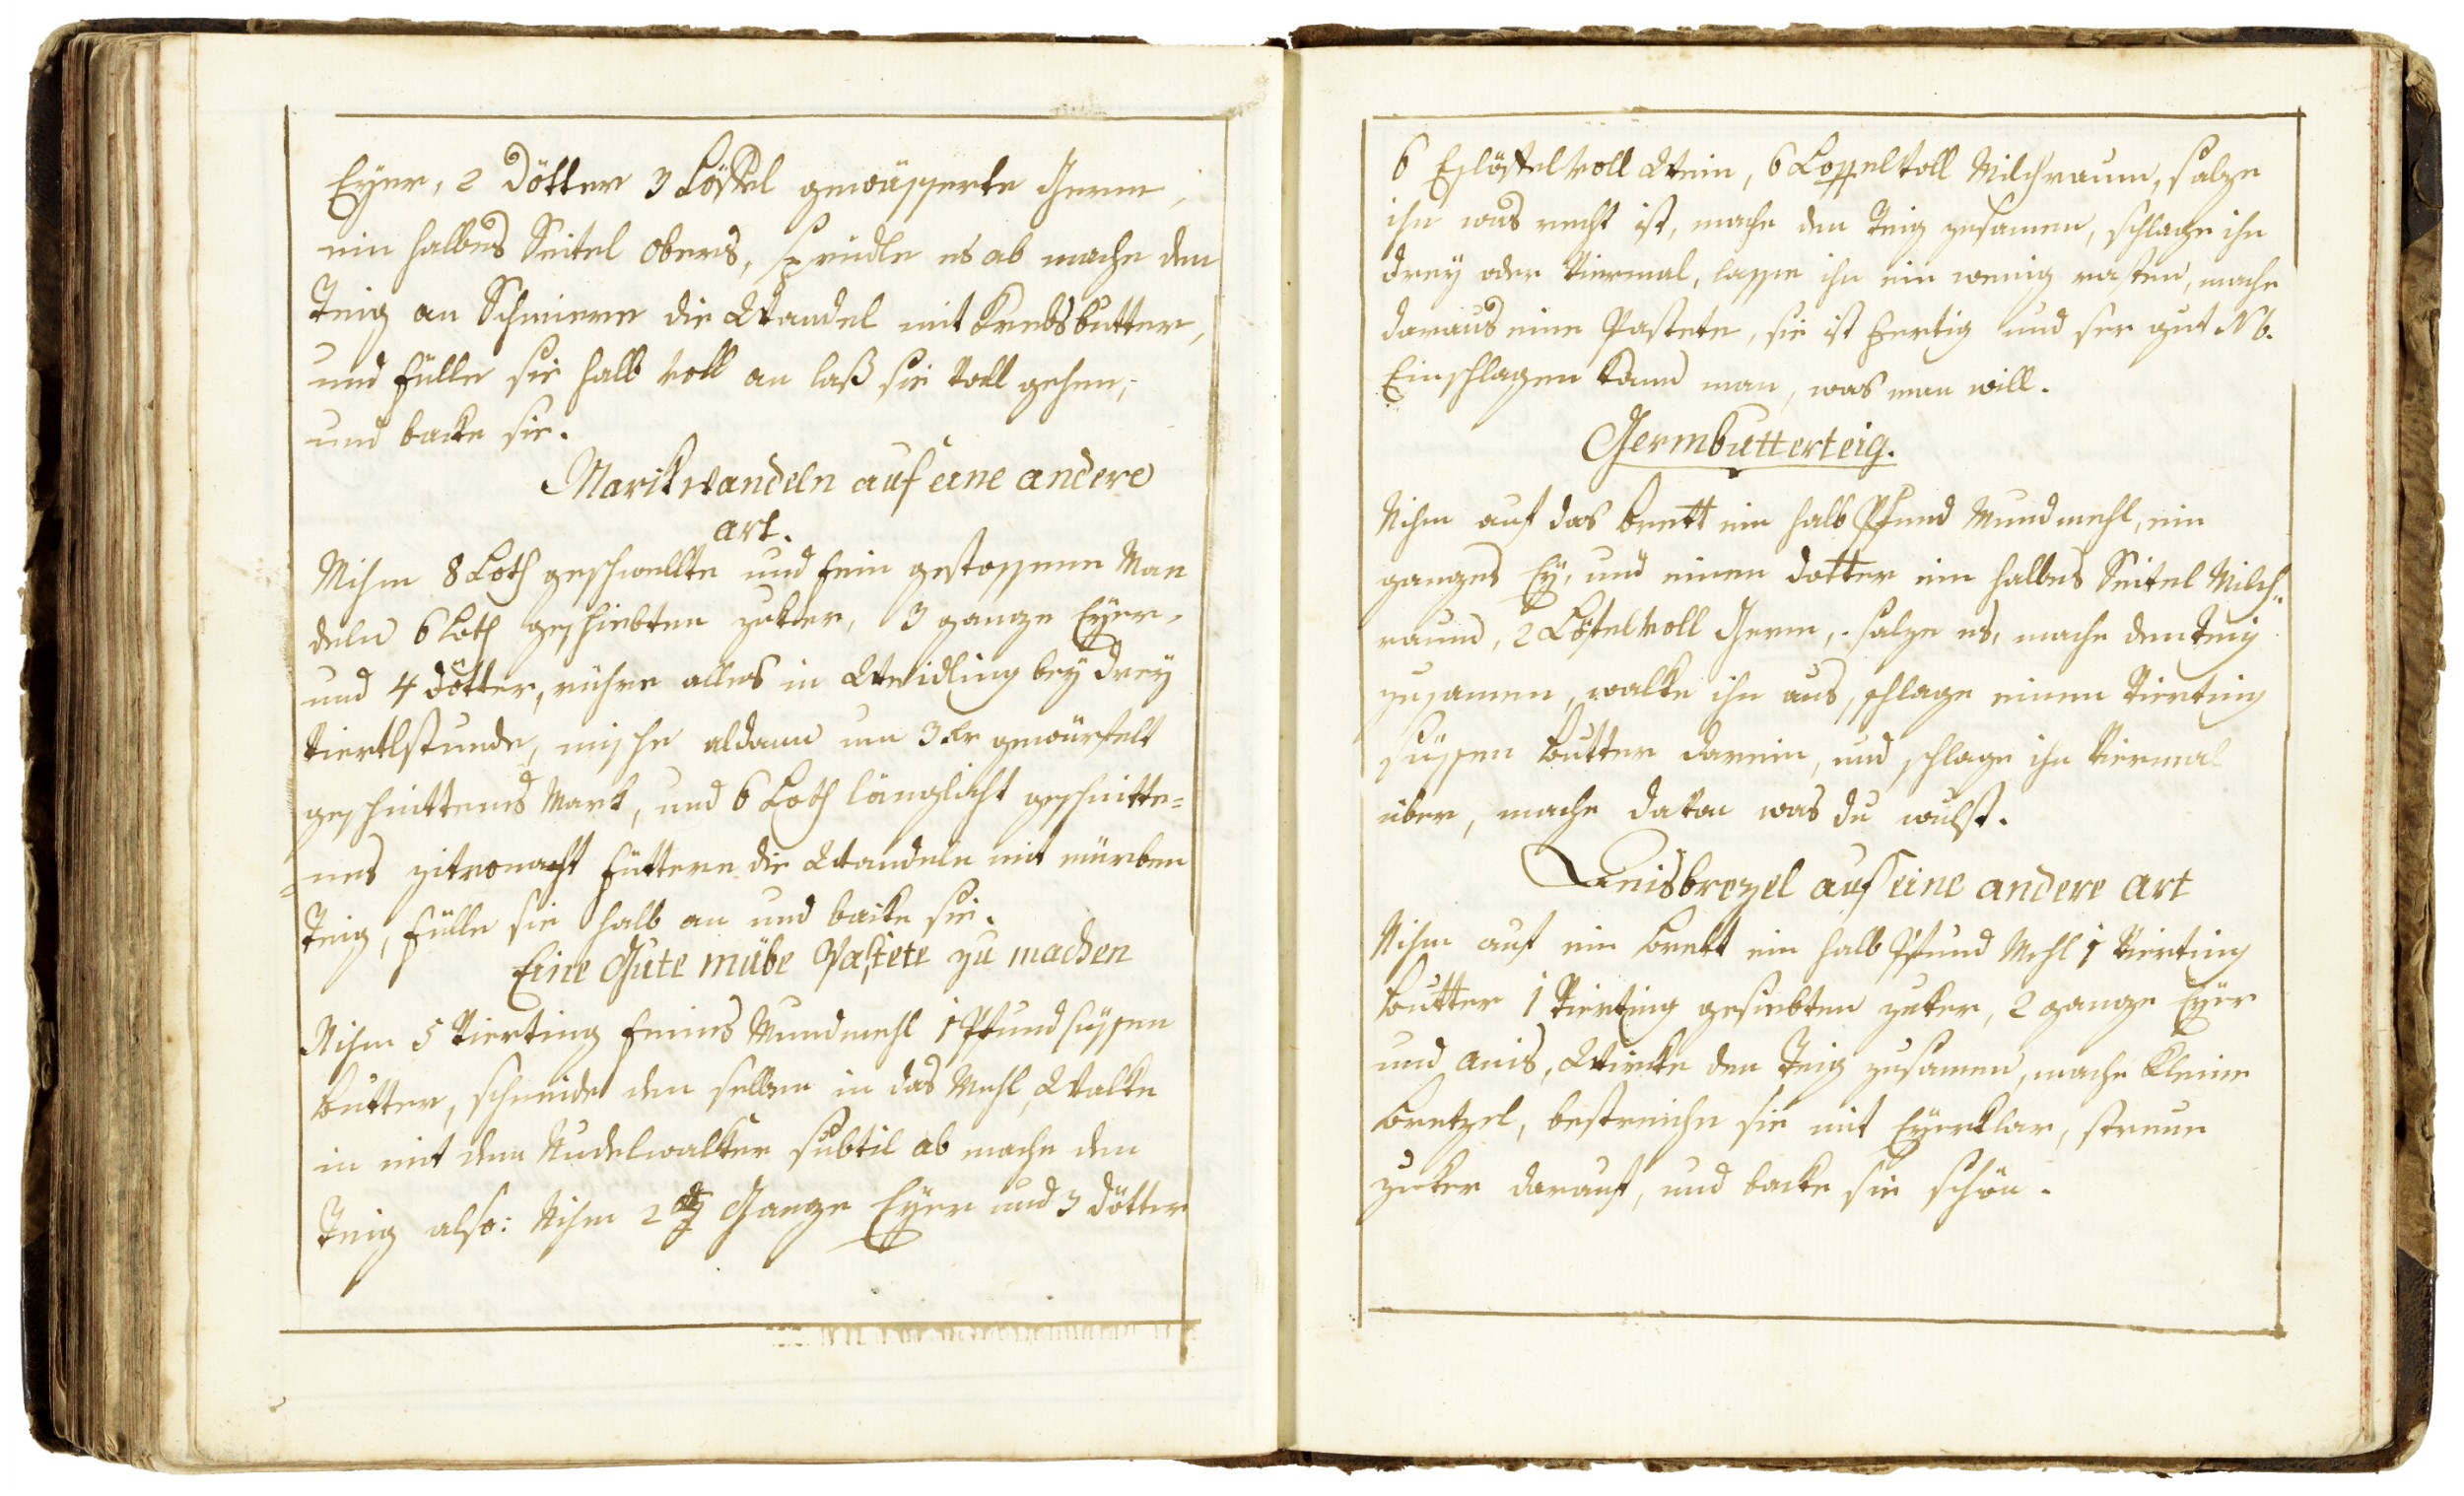 Eyer, 2 Dötter 3 Löffel gewässerte Germ,
ein halbes Seitel Obers, sprudle es ab mache den
Teig an Schmiere die Wandel mit Krebsbutter,
und fülle sie halb voll an laß sie voll gehen,
und backe sie.
Markwandeln auf eine andere
art.
Nihm 8 Loth geschwellte und fein gestossene Man
deln 6 Loth geschiebten zuker, 3 ganze Eyer,
und 4 dötter, rühre alles in Weidling bey drey
viertlstunde, mische aldann um 3 Kr gewürfelt
geschnittenes Mark, und 6 Loth länglicht geschnitte=
=nes zitronacht füttere die Wandeln mit mürben
Teig, fülle sie halb an und backe sie.
Eine Gute mübe Pastete zu machen
Nihm 5 Vierting feines Mundmehl 1 Pfund süssen
Butter, schneide den selben in das Mehl, Walke
in mit dem Nudelwalker subtil ab mache den
Teig also: Nihm 2 Ganze Eyer und 3 dötter
6 Eslöffel voll Wein, 6 Löffel voll Milchraum, salze
ihn was recht ist, mache den Teig zusamen, schlage ihn
drey oder viermal, lasse ihn ein wenig rasten, mache
daraus eine Pastete, sie ist fertig und ser gut Nb.
Einschlagen kann man, was man will.
Germbutterteig.
Nihm auf das Brett ein halb Pfund Mundmehl, ein
ganzes Ey, und einen dotter ein halbes Seitel Milch"
raum, 2 Löfel voll Germ, salze es, mache den Teig
zusamen, walke ihn aus, schlage einen Vierting
süssen Butter darein, und schlage ihn Viermal
über, mache davon was du wilst.
Anisbrezel auf eine andere art
Nihm auf ein Brett ein halb Pfund Mehl 1 Vierting
Butter 1 Vierting gesiebten zuker, 2 ganze Eyer
und anis, Wirke den Teig zusamen, mache kleine
Bretzel, bestreiche sie mit Eyerklar, streue
zuker darauf, und backe sie schön.